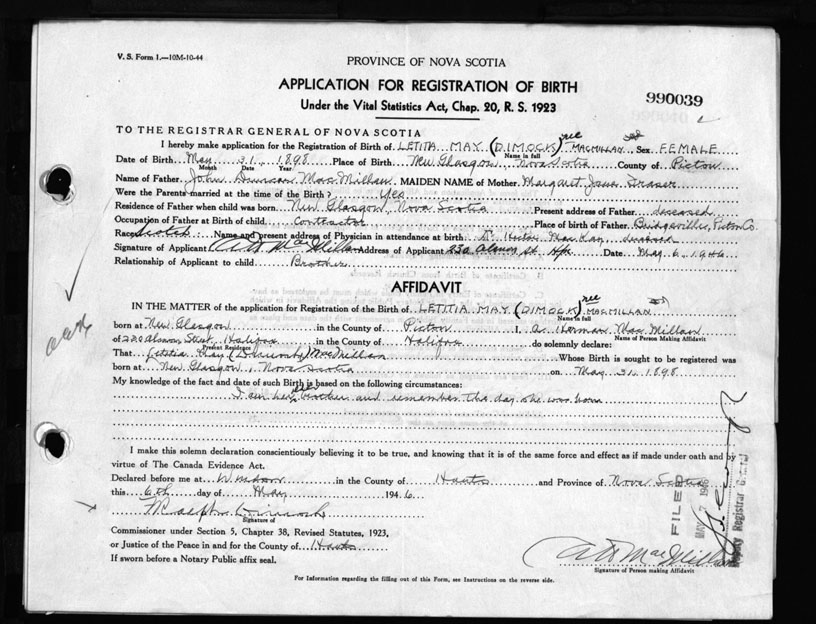 V. S. Form 1.—10M-10-44
PROVINCE OF NOVA SCOTIA
APPLICATION FOR REGISTRATION OF BIRTH
990039
Under the Vital Statistics Act, Chap. 20, R. S. 1923
TO THE REGISTRAR GENERAL OF NOVA SCOTIA
I hereby make application for the Registration of Birth of LETITA MAY (DIMOCK) née MACMILLAN Sex FEMALE
Name in full
Date of Birth May 31 1898 Place of Birth New Glasgow Nova Scotia County of Pictou
Month Date Year
Name of Father John Duncan MacMillan MAIDEN NAME of Mother Margaret Jane Fraser
Were the Parents married at the time of the Birth? Yes
Residence of Father when child was born New Glasgow, Nova Scotia Present address of Father deceased
Occupation of Father at Birth of child contractor Place of birth of Father Bridgeville, Pictou Co
Race Scotch Name and present address of Physician in attendance at birth Dr. Hector MacKay, deceased
Signature of Applicant A H MacMillan Address of Applicant 230 St. Hfx Date May 6, 1946
Relationship of Applicant to child Brother
AFFIDAVIT
IN THE MATTER of the application for Registration of Birth of LETITIA MAY (DIMOCK) née MACMILLAN
Name in full
born at New Glasgow in the County of Pictou I, A. Norman MacMillan
Name of Person Making Affidavit
of Street, Halifax in the County of Halifax do solemnly declare:
Present Residence
That Letitia May (Dimock) MacMillan Whose Birth is sought to be registered was
born at New Glasgow, Nova Scotia on May 31, 1898
My knowledge of the fact and date of such Birth is based on the following circumstances:
I am her brother and remember the day she was born
I make this solemn declaration conscientiously believing it to be true, and knowing that it is of the same force and effect as if made under oath and by
virtue of The Canada Evidence Act.
Declared before me at Windsor in the County of Hants and Province of Nova Scotia
this 6th day of May 1946
Ralph Dimock
Signature of
Commissioner under Section 5, Chapter 38, Revised Statutes, 1923,
or Justice of the Peace in and for the County of Hants
If sworn before a Notary Public affix seal.
A H MacMillan
Signature of Person making Affidavit
For Information regarding the filling out of this Form, see Instructions on the reverse side.
FILED
MAY 7 1946
Deputy Registrar General